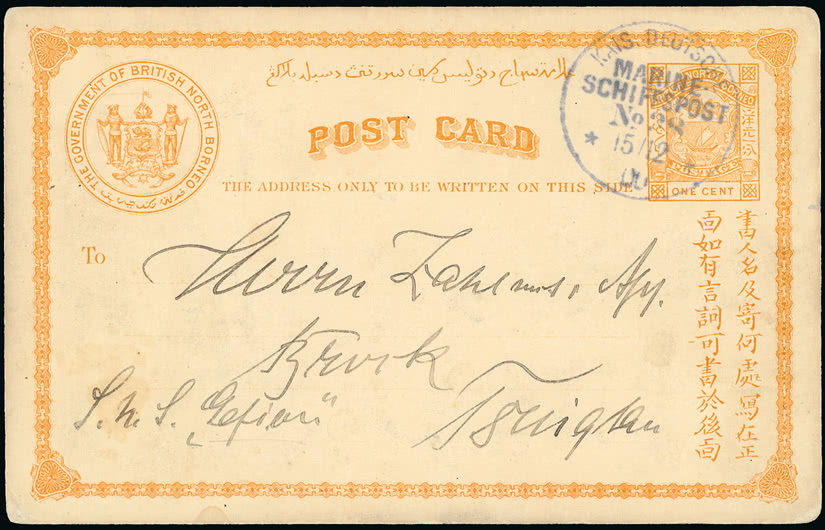 THE GOVERNMENT OF BRITISH NORTH BORNEO
POST CARD
THE ADDRESS ONLY TO BE WRITTEN ON THIS SIDE
KAIS. DEUTSCHE
MARINE-
SCHIFFSPOST
No 28
* 15/12 *
00
ONE CENT
To
Herrn Zahlms. App.
Brock
S. M. S. „Gefion“
Tsingtau
書人名及寄何處寫在正
面如有言詞可書於後面